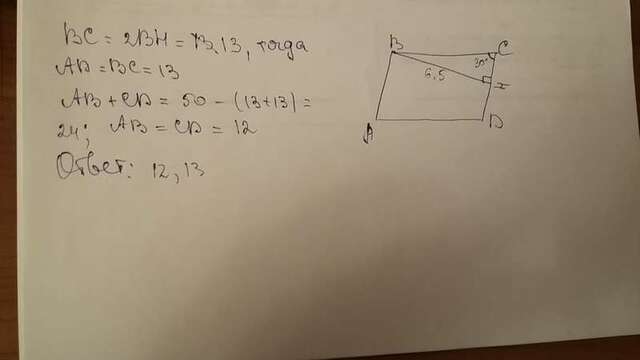 BC = 2BH = 13, тогда
AD = BC = 13
AB + CD = 50 - (13+13) =
24; AB = CD = 12
Ответ: 12, 13
B
C
30°
6,5
A
D